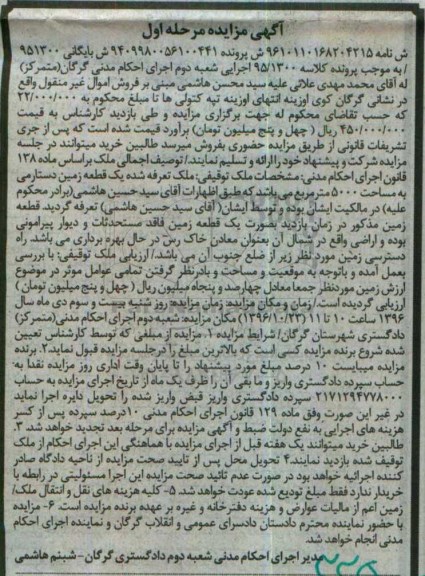 آگهی مزایده مرحله اول
ش نامه 9610110168204215 ش پرونده 9409980056100441 ش بایگانی 951300
/ به موجب پرونده کلاسه 95/1300 اجرایی شعبه دوم اجرای احکام مدنی گرگان(متمرکز)
له آقای محمد مهدی علائی علیه سید محسن هاشمی مبنی بر فروش اموال غیر منقول واقع
در نشانی گرگان کوی اوزینه انتهای اوزینه تپه کتولی ها تا مبلغ محکوم به 22/000/000
که حسب تقاضای محکوم له جهت برگزاری مزایده و طی بازدید کارشناس به قیمت
450/000/000 ریال ( چهل و پنج میلیون تومان) برآورد قیمت شده است که پس از جری
تشریفات قانونی از طریق مزایده حضوری بفروش میرسد طالبین خرید میتوانند در جلسه
مزایده شرکت و پیشنهاد خود را ارائه و تسلیم نمایند./ توصیف اجمالی ملک براساس ماده 138
قانون اجرای احکام مدنی: مشخصات ملک توقیفی: ملک تعرفه شده یک قطعه زمین دستارمی
به مساحت 5000 مترمربع می باشد که طبق اظهارات آقای سید حسین هاشمی(برادر محکوم
علیه) در مالکیت ایشان بوده و توسط ایشان( آقای سید حسین هاشمی) تعرفه گردید. قطعه
زمین مذکور در زمان بازدید بصورت یک قطعه زمین فاقد مستحدثات و دیوار پیرامونی
بوده و اراضی واقع در شمال آن بعنوان معادن خاک رس در حال بهره برداری می باشد. راه
دسترسی زمین مورد نظر زیر از ضلع جنوب آن می باشد./ ارزیابی ملک توقیفی: با بررسی
بعمل آمده و باتوجه به موقعیت و مساحت و بادرنظر گرفتن تمامی عوامل موثر در موضوع
ارزش زمین موردنظر جمعا معادل چهارصد و پنجاه میلیون ریال ( چهل و پنج میلیون تومان )
ارزیابی گردیده است./ زمان و مکان مزایده: زمان مزایده: روز شنبه بیست و سوم دی ماه سال
1396 ساعت 10 تا 11 (1396/10/23) مکان مزایده: شعبه دوم اجرای احکام مدنی(متمرکز)
دادگستری شهرستان گرگان/ شرایط مزایده 1. مزایده از مبلغی که توسط کارشناس تعیین
شده شروع برنده مزایده کسی است که بالاترین مبلغ را درجلسه مزایده قبول نماید2. برنده
مزایده میبایست 10 درصد مبلغ مورد پیشنهاد را تا پایان وقت اداری روز مزایده نقدا به
حساب سپرده دادگستری واریز و ما بقی آن را ظرف یک ماه از تاریخ اجرای مزایده به حساب
2171294778000 سپرده دادگستری واریز قبض واریز شده را تحویل دایره اجرا نماید
در غیر این صورت وفق ماده 129 قانون اجرای احکام مدنی 10درصد سپرده پس از کسر
هزینه های اجرایی به نفع دولت ضبط و آگهی مزایده برای مرحله بعد تجدید خواهد شد. 3.
طالبین خرید میتوانند یک هفته قبل از اجرای مزایده با هماهنگی این اجرای احکام از ملک
توقیف شده بازدید نمایند.4 تحویل محل پس از تایید صحت مزایده از ناحیه دادگاه صادر
کننده اجرائیه خواهد بود در صورت عدم تائید صحت مزایده این اجرا مسئولیتی در رابطه با
خریدار ندارد فقط مبلغ تودیع شده عودت خواهد شد. 5- کلیه هزینه های نقل و انتقال ملک/
زمین اعم از مالیات عوارض و هزینه دفترخانه و غیره بر عهده برنده مزایده است. 6- مزایده
با حضور نماینده محترم دادستان دادسرای عمومی و انقلاب گرگان و نماینده اجرای احکام
مدنی انجام خواهد شد.
مدیر اجرای احکام مدنی شعبه دوم دادگستری گرگان- شبنم هاشمی